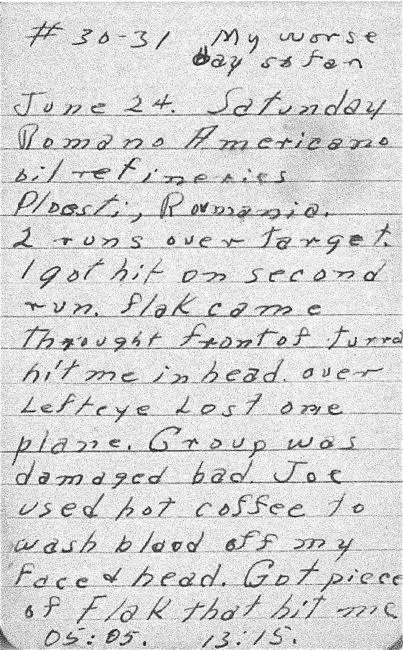 # 30-31 My worse
day so far
June 24. Saturday
Romano Americano
oil refineries
Ploesti, Roumania.
2 runs over target.
I got hit on second
run. flak came
throught front of turret
hit me in head. over
Left eye Lost one
plane. Group was
damaged bad. Joe
used hot coffee to
wash blood off my
face & head. Got piece
of Flak that hit me
05:05. 13:15.